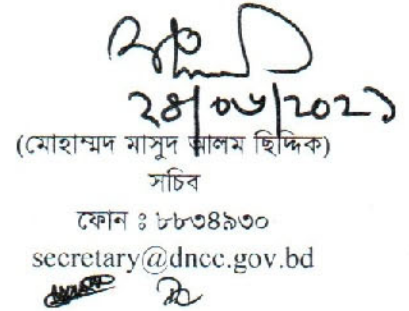 ২৪/০৬/২০২১
(মোহাম্মদ মাসুদ আলম ছিদ্দিক)
সচিব
ফোন ঃ ৮৮৩৪৯৩০
secretary@dncc.gov.bd